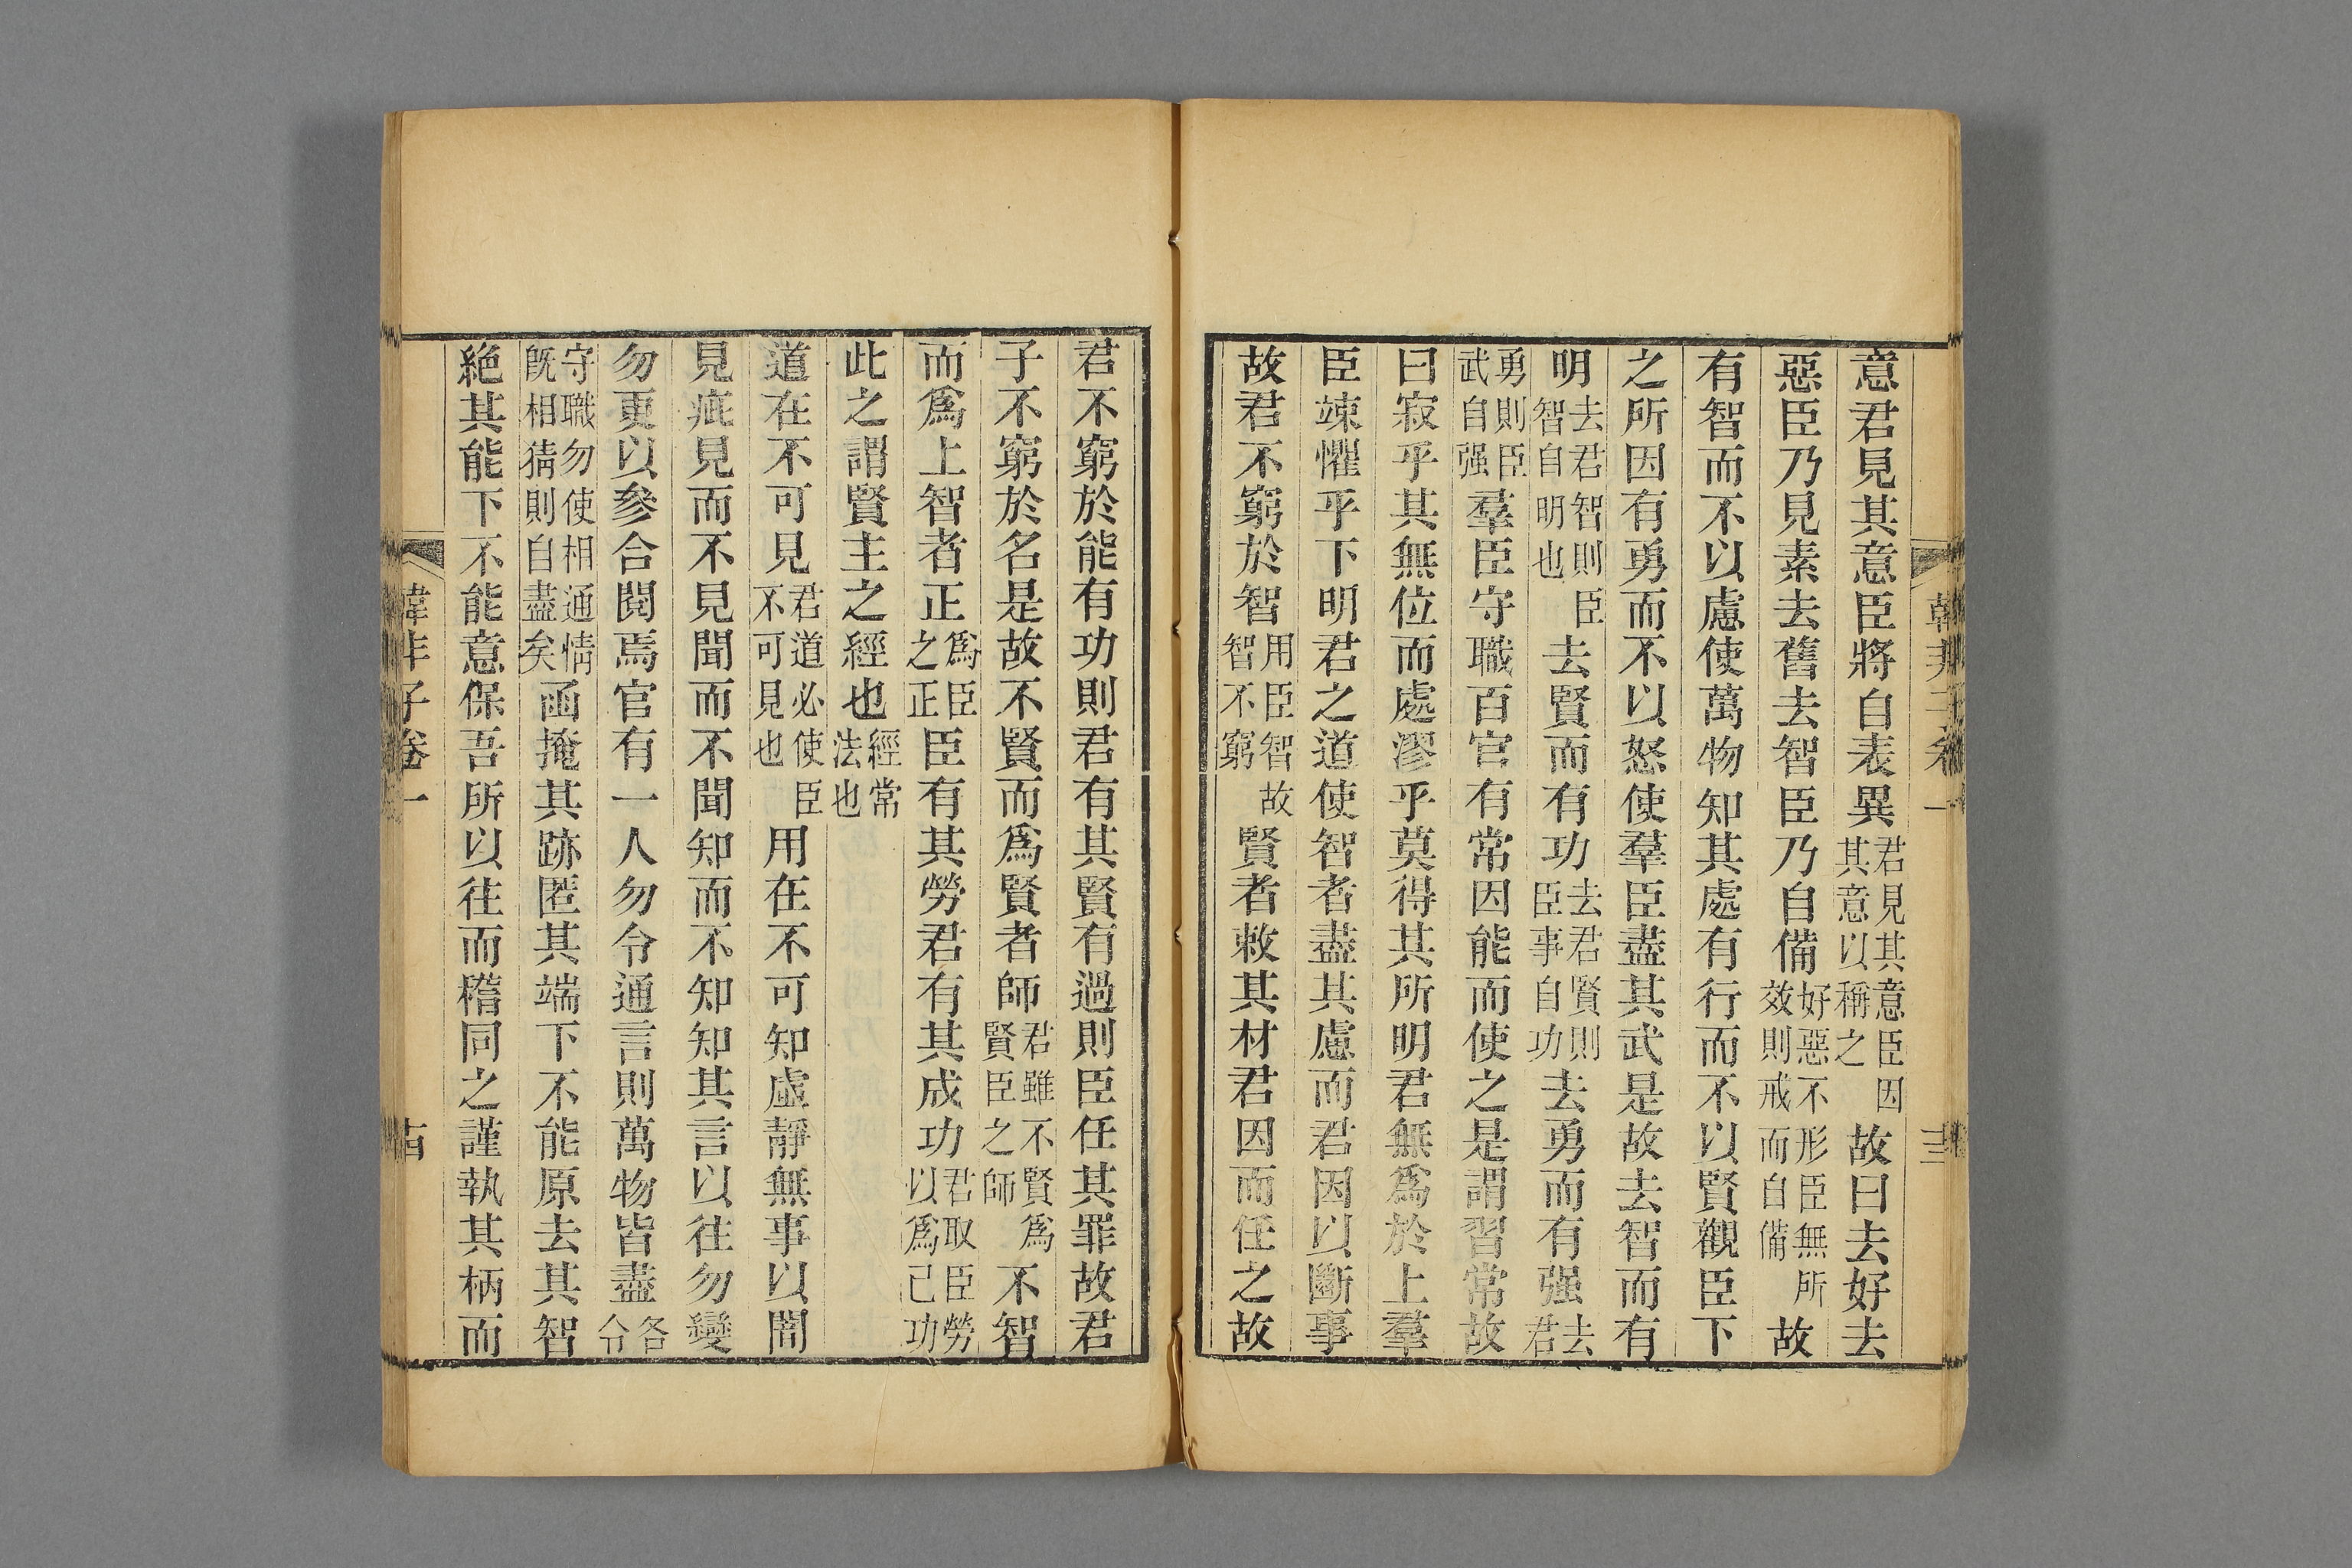 意君見其意臣將自表異君見其意臣因其意以稱之故曰去好去
惡臣乃見素去舊去智臣乃自備好惡不形臣無所效則戒而自備故
有智而不以慮使萬物知其處有行而不以賢觀臣下
之所因有勇而不以怒使羣臣盡其武是故去智而有
明去君智則臣智自明也去賢而有功去君賢則臣事自功去勇而有强去君
勇則臣武自强羣臣守職百官有常因能而使之是謂習常故
曰寂乎其無位而處漻乎莫得其所明君無爲於上羣
臣竦懼乎下明君之道使智者盡其慮而君因以斷事
故君不窮於智用臣智故智不窮賢者敕其材君因而任之故
君不窮於能有功則君有其賢有過則臣任其罪故君
子不窮於名是故不賢而爲賢者師君雖不賢爲賢臣之師不智
而爲上智者正爲臣之正臣有其勞君有其成功君取臣勞以爲己功
此之謂賢主之經也經常法也
道在不可見君道必使臣不可見也用在不可知虛靜無事以闇
見疵見而不見聞而不聞知而不知知其言以往勿變
勿更以參合閱焉官有一人勿令通言則萬物皆盡各令
守職勿使相通情既相猜則自盡矣函掩其跡匿其端下不能原去其智
絶其能下不能意保吾所以往而稽同之謹執其柄而
韓非子卷一